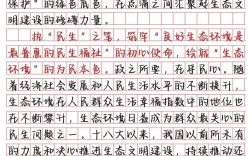 保护”的绿色底色，在点滴之间汇聚起生态文
明建设的磅礴力量。
执“民生”之笔，筑牢“良好生态环境是
最普惠的民生福祉”的初心使命，绘就“生态
环境”的为民本色。政之所要，在乎民心。随
着经济社会发展和人民生活水平的不断提升，
生态环境在人民群众生活幸福指数中的地位也
在不断攀升，生态环境日益成为群众最关心的
民生问题之一。十八大以来，我国以前所未有
的力度和决心推进生态文明建设，持续推动还